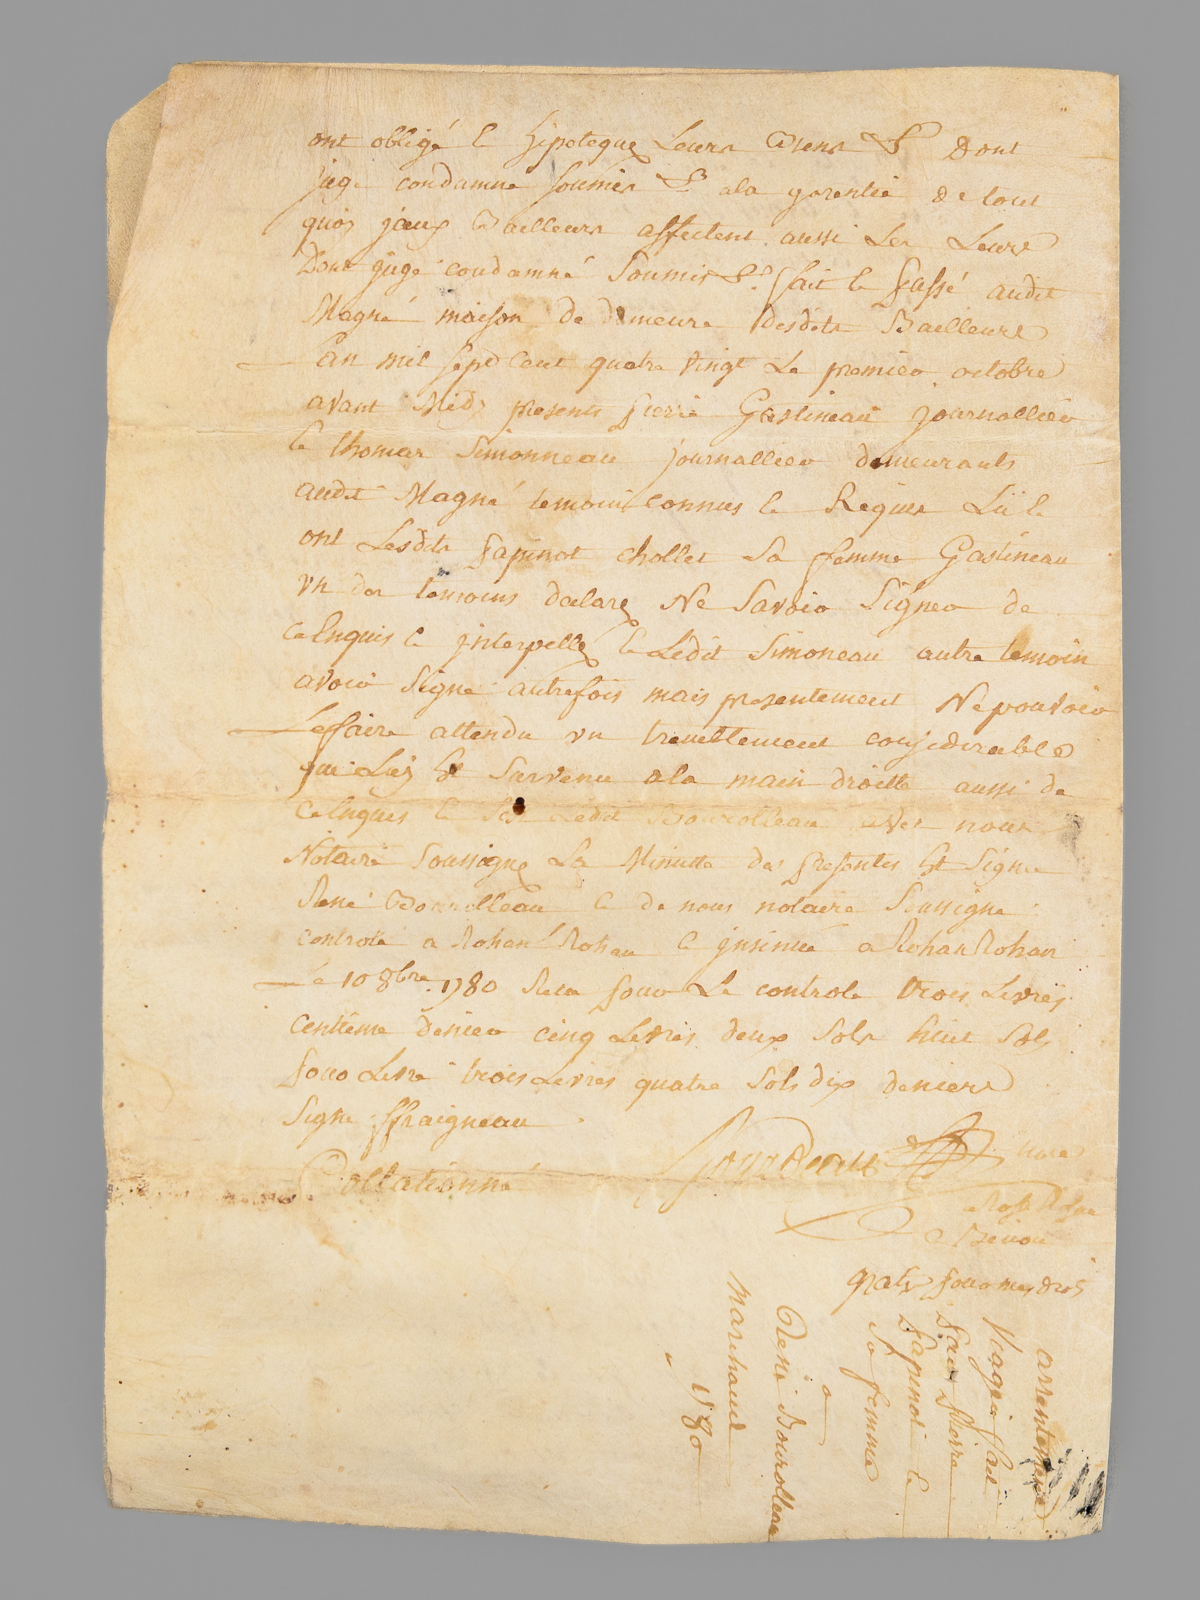 ont obligé & hipotequé Leurs Biens &c Dont
jugé condamné soumis &c a la garentie de tout
quoy jceux Bailleurs affectent aussi Les Leurs
Dont jugé condamné Soumis &c fait & passé audit
Magné maison de demeure desdits Bailleurs
Lan mil sept cent quatre vingt Le premier octobre
avant Midy presents pierre Gastineau journallier
& thomas Simonneau journallier demeurants
audit Magné temoins connus & Requis Lû &
ont Lesdits papinot chollet Sa femme Gastineau
vn des temoins declaré Ne Savoir Signer de
ce Enquis & jnterpellé & Ledit Simoneau autre temoin
avoir Signé autrefois mais presentement Ne pouvoir
Le faire attendu vn tremblement considerable
qui Luy Est Survenu a la main droitte aussi de
ce Enquis & Ledit Bourolleau avec nous
Notaire Soussigné La Minutte des presentes Est Signée
René Bourolleau & de nous notaire Soussigné
controllé a Rohan Rohan & jnsinué a Rohan Rohan
Le 10 8bre 1780 Reçu pour Le controle trois Livres
centieme denier cinq Livres deux Sols huit Sols
pour Livre trois Livres quatre Sols dix deniers
Signé ffraigneau
Collationné
Jourdeau
Rohan Rohan
gratis pour mes droits
arrentement
Magné fait
par Pierre
Papinot &
Sa femme
a
René Bourolleau
Marchand
1780